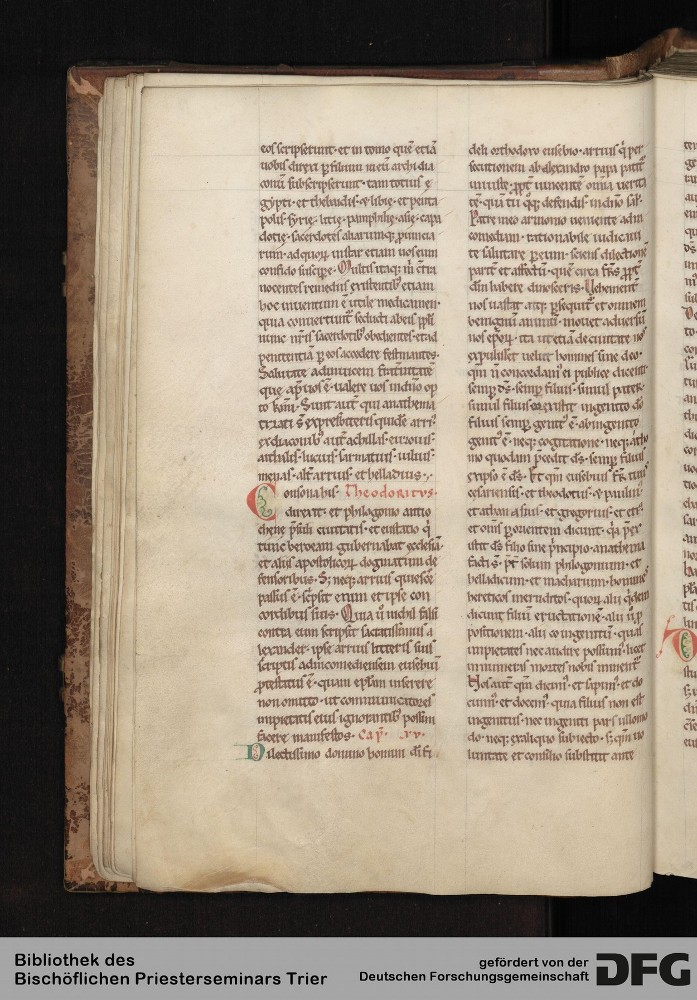 eos scripserunt · et in tomo quē etiā
uobis direxi ꝑ filium meū archidia
conū subscripserunt · tam totius e
gypti · et thebaidis · & libie · et penta
polis · syrie · litie · pamphilie · asie · capa
docie · sacerdotes aliarumq; ꝓuincia
rum · ad quoꝝ instar etiam uos eum
confido suscipe · Multis itaq; m̄ ct̄ra
nocentes remediis existentibꝰ etiam
hoc inuentum ē utile medicamen ·
quia conuertunt᷑ seducti ab eis ppl̄i
nunc nr̄is sacerdotibꝰ obedientes · et ad
penitentiā ꝑ eos accedere festinantes ·
Salutate adinuicem frat̄nitatē
que ap̄ uos ē · ualere uos in dn̄o op
to kmi · Sunt aut̄ qui anathema
tizati s̄ ex presbiteris quidē arriꝰ
ex diaconibꝰ aut̄ achillas · euzouis ·
aithalis · lucius · sarmatius · iulius ·
menas · alt̄ arrius et helladius ·
Consona his Theodoritus ·
direxit · et philogonio antio
chene p̄suli ciuitatis · et eustatio q̄
tunc beroeam gubernabat ecclesiā ·
et aliis apostolicoꝝ dogmatum de
fensoribus · S; neq; arrius quiescē
passus ē · sc̄psit enim et ipse con
cordibus suis · Quia ū nichil falsi
contra eum scripsit sacratissimus a
lexander · ipse arrius litteris suis
scriptis ad nicomediensem eusebiū
ꝓtestatus ē · quam ep̄lam inserere
non omitto · ut communicatores
impietatis eius ignorantibꝰ possim
facere manifestos · Cap̄ · xv ·
Dilectissimo domino homini dī fi
deli orthodoxo eusebio · arrius q̄ per
secutionem ab alexandro papa patit᷑
iniuste · ꝓpt̄ uincente omnia uerita
tē · quā tu qq; defendis · in dn̄o sal̄ ·
Patre meo ammonio ueniente ad ni
comediam · rationabile iudicaui
te salutare ꝑ eum · sciens dilectionē
parit̄ et affectū · quē circa fr̄s ꝓpt̄
dm̄ habere dinosceris · Uehement̄
nos uastat atq; ꝑsequit᷑ · et omnem
benignum animū mouet aduersū
nos ep̄oꝝ · ita ut etiā de ciuitate nos
expulisset uelut homines sine deo ·
qm̄ n̄ concordam ei publice dicenti ·
semꝑ ds̄ · semꝑ filius · simul pater ·
simul filius · existit ingenito dō
filius semꝑ genitꝰ ē · ab ingenito
genitꝰ ē · neq; cogitatione · neq; atho
mo quodam p̄cedit ds̄ · semꝑ filius
ex ipso ē ds̄ · Et qm̄ eusebius fr̄ tuus
cesariensis · et theodotus · & paulinꝰ
et athanasius · et gregorius · et etiꝰ ·
et om̄s ꝑ orientem dicunt · qa p̄ex
istit ds̄ filio sine p̄ncipio · anathema
facti s̄ · pt̄ solum philogonium · et
helladicum · et macharium · homines
hereticos ineruditos · quoꝝ alii q̄dem
dicunt filiū eructationē · alii ū ꝓ
positionem · alii coingenitum · quas
impietates nec audire possum · licet
innumeras mortes nobis minent᷑ ·
Nos aut̄ qm̄ dicimꝰ · et sapimꝰ · et do
cuimꝰ · et docemꝰ · quia filius non est
ingenitus · nec ingeniti pars ullomo
do · neq; ex aliquo subiecto · s; qm̄ uo
luntate et consilio substitit ante
Bibliothek des
Bischöflichen Priesterseminars Trier
gefördert von der
Deutschen Forschungsgemeinschaft
DFG